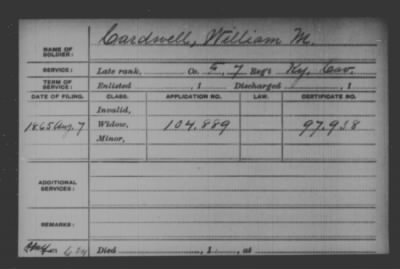 NAME OF SOLDIER: Cardwell, William M.
SERVICE: Late rank, Co. 5, 7 Reg't Ky. Cav.
TERM OF SERVICE: Enlisted , 1 Discharged , 1
DATE OF FILING. CLASS. APPLICATION NO. LAW. CERTIFICATE NO.
Invalid,
1865 Aug. 7 Widow, 104.889 97.958
Minor,
ADDITIONAL SERVICES:
REMARKS:
Died , 1 , at